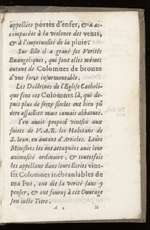 appellées portes d'enfer, & à ac-
comparées à la violence des vents,
& à l'impetuosité de la pluie:
Sur Elle il a graué ses Verités
Euangeliques, qui sont elles mémes
autant de Colomnes de bronze
d'vne force insurmontable.
Les Doctrines de l'Eglise Catholi-
que sont ces Colomnes là, qui de-
puis plus de seize siecles ont bien pû
étre assaillies mais iamais abbatues.
I'en auois proposé trentesix aux
suiets de V. A. R. les Habitans de
S. Iean, en autant d'Articles. Leurs
Ministres les ont attaquées auec leur
animosité ordinaire; & toutefois
les appellans dans leurs Ecrits trente-
six Colomnes inebranlables de
ma Foi, ont dit la verité sans y
penser, & ont fourni à cét Ouurage
son iuste Titre.